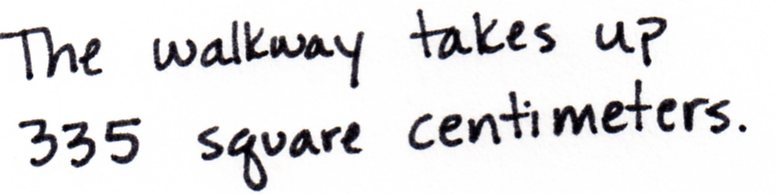 The walkway takes up
335 square centimeters.